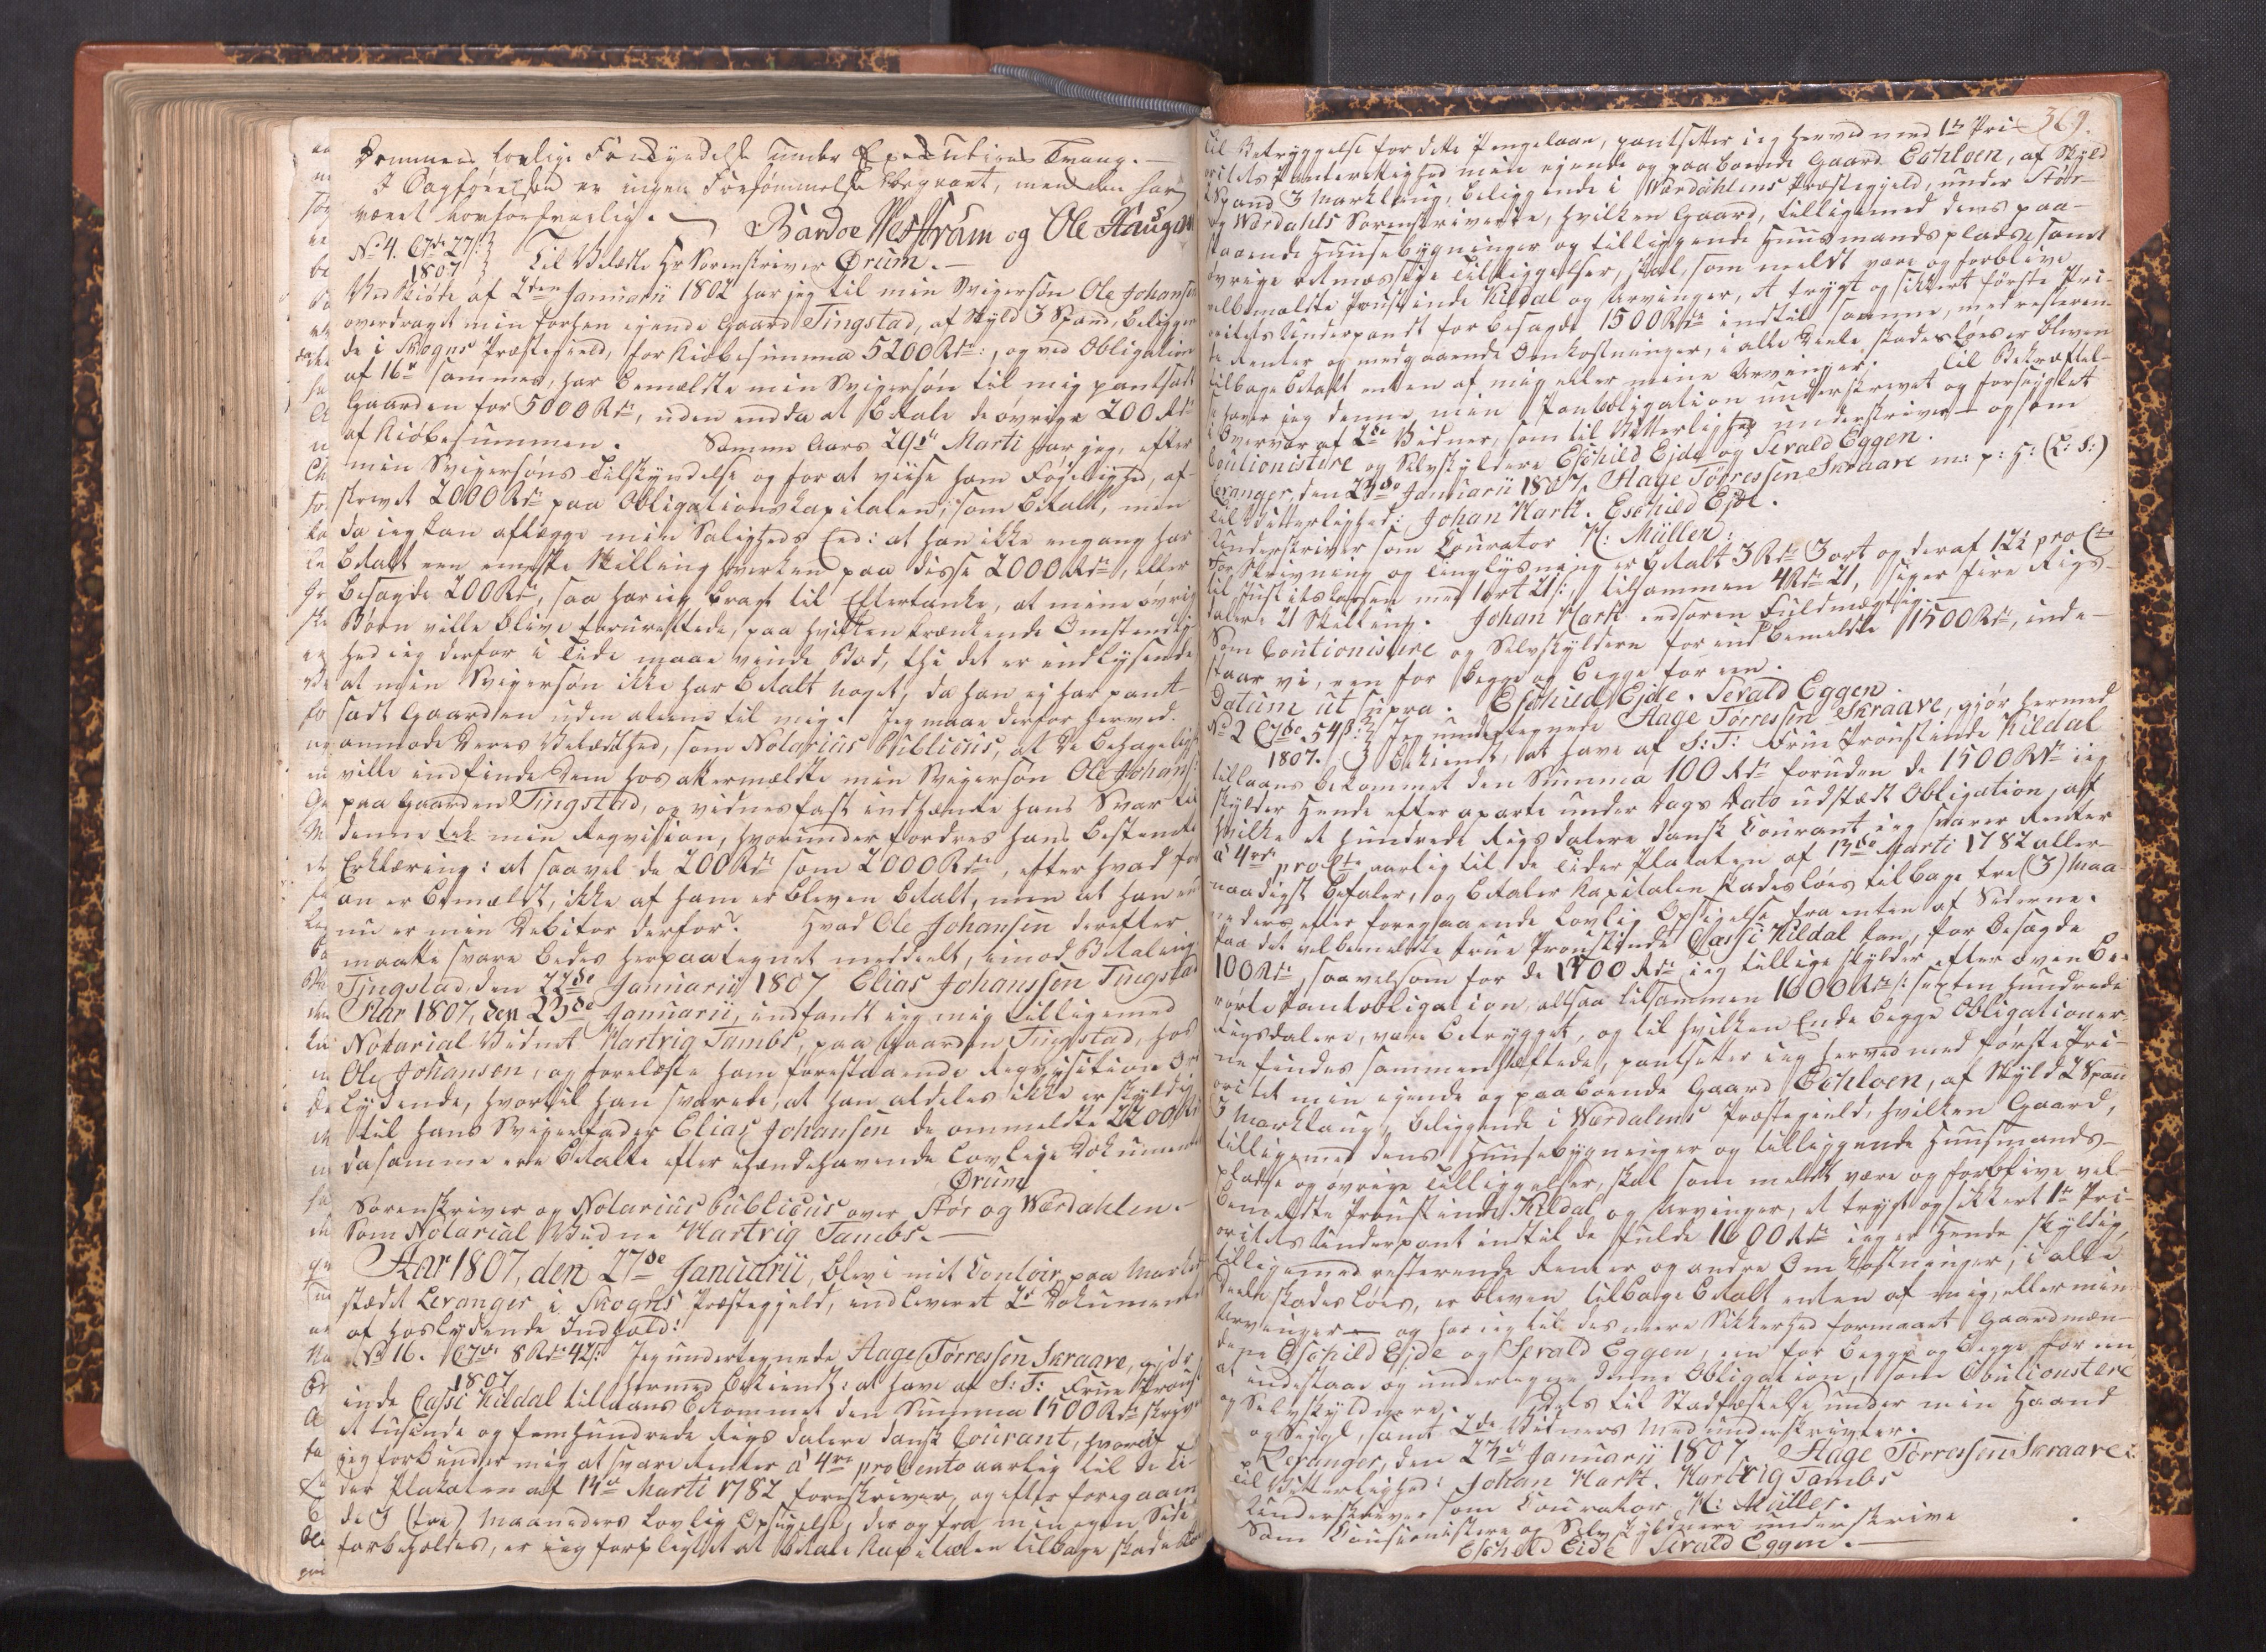 Dommens lovlige Forkyndelse under Executions Tvang. —
I Sagførelsen er ingen Forsømmelse begaaet, men den har
været lovforsvarlig. — Bardoe Westrum og Ole Haugen
No 4. 27 s:
1807 Til Velædle Hr Sorenskriver Ørum. —
Ved Skiøde af 2den Januarii 1802 har jeg til min Svigersøn Ole Johansen
overdraget min forhen eiende Gaard Tingstad, af Skyld 3 Spand, beliggen
de i Skogns Præstegield, for Kiøbesumma 5200 Rdr:, og ved Obligation
af 16de sammes, har bemældte min Svigersøn til mig pantsadt
Gaarden for 5000 Rdr, uden endda at betale de øvrige 200 Rdr
af Kiøbesummen. Samme Aars 29de Marti har jeg, efter
min Svigersøns Tilskyndelse og for at viise ham Føyelighed, af-
skrevet 2000 Rdr paa Obligationskapitalen, som betalt, men
da jeg kan aflægge min Saligheds Eed: at han ikke engang har
betalt een eneste Skilling hverken paa disse 2000 Rdr, eller
besagde 200 Rdr, saa har jeg bragt til Eftertanke, at mine øvrige
Børn ville blive forurettede, paa hvilken krænkende Omstændig-
hed jeg derfor i Tide maae vinde Bod, thi det er indlysende
at min Svigersøn ikke har betalt noget, da han ej har pant-
sadt Gaarden uden alene til mig. Jeg maae derfor herved
anmode Deres Velædelhed, som Notarius Publicus, at De behageligst
ville indfinde Dem hos ommældte min Svigersøn Ole Johans:
paa Gaarden Tingstad, og vidnesfast indhænte hans Svar til
denne min Reqvisition, hvorunder fordres hans bestemte
Erklæring: at saavel de 200 Rdr som 2000 Rdr, efter hvad for
an er bemældt, ikke af ham er bleven betalt, men at han end
nu er min Debitor derfor? Hvad Ole Johansen derefter
maatte svare bedes herpaategnet meddeelt, imod Betaling.
Tingstad, den 22de Januarii 1807 Elias Johanssen Tingstad
Aar 1807, den 23de Januarii, indfandt jeg mig tilligemed
Notarial Vidnet Hartvig Tambs, paa Gaarden Tingstad, hos
Ole Johansen, og forelæste ham forestaaende Reqvisition
Lydende, hvortil han svarede, at han aldeles ikke er skyldig
til hans Svigerfader Elias Johansen de ommeldte 2200 Rd
da samme ere betalte efter ihændehavende lovlige Dokumenter
Ørum
Sorenskriver og Notarius Publicus over Stør og Wærdahlen. —
Som Notarial Vidne Hartvig Tambs. —
Aar 1807, den 27de Januarii, blev i mit Contoir paa Marked
stædet Levanger i Skogns Præstegield, indleveret 2de Dokumenter
af hoslydende Indhold:
No 16. 8 Rdr 42 s: Jeg undertegnede Aage Tørressen Skraave, gjør
1807 hermed bekiendt: at have af S: T: Frue Proust
inde Cassi Kildal tillaans bekommet den Summa 1500 Rdr skriver
et tusinde og femhundrede Rigsdalere dansk Courant, hvoraf
jeg forbinder mig at svare Renter à 4re procento aarlig til de Ti-
der Plakaten af 14de Marti 1782 foreskriver, og efter foregaaen
de 3 (tre) Maaneders lovlig Opsigelse, der og fra min egen Side
forbeholdes, er jeg forpligtet at betale Kapitalen tilbage skadesløs
369.
til Betryggelse for dette Pengelaan, pantsetter jeg herved med 1te Pri-
oritets Panterettighed min ejende og paaboende Gaard Echloen, af Skyld
2 Spand 3 Marklaug, beliggende i Wærdahlens Præstegjeld, under Stør-
og Wærdahls Sorenskriverie, hvilken Gaard, tilligemed dens paa-
staaende Huusebygninger og tilliggende Huusmandsplads, samt
øvrige retmæssige Tilliggelser, skal, som meldt være og forblive
velbemældte Proustinde Kildal og Arvinger, et trygt og sikkert første Pri-
oritets Underpandt for besagde 1500 Rdr indtil samme, med resteren-
de Renter og medgaaende Omkostninger, i alle Deele skadesløes er bleven
tilbagebetalt enten af mig eller mine Arvinger. Til Bekræftel-
se haver jeg denne min Pantobligation underskrevet og forseiglet
i Overvær af 2de Vidner, som til Vitterlighed underskriver — og som
Coutionistere og Selvskyldere Eschild Ejde og Sevald Eggen.
Levanger, den 23de Januarii 1807. Aage Tørressen Skraave m: p: H: (L: S:)
Til Vitterlighed: Johan Hark. Eschild Ejde.
Underskriver som Courator H: Müller.
For Skrivning og Tinglysning er betalt 3 Rdr 3 ort og deraf 12½ pro Cto
til Justitskassen med 1 ort 21 s:, tilsammen 4 Rdr 21, siger fire Rigs-
daler 21 Skilling. Johan Hark edsoren Fuldmægtig.
Som Coutionistere og Selvskyldere for indbemeldte 1500 Rdr, inde-
staar vi, een for begge og begge for een.
Datum ut supra. Eschild Ejde. Sevald Eggen.
No 2 54 s: Jeg undertegnede Aage Tørressen Skraave, gjør hermed
1807. bekiendt, at have af S: T: Frue Proustinde Kildal
tillaans bekommet den Summa 100 Rdr foruden de 1500 Rdr jeg
skylder Hende efter aparte under Dags Dato udstædt Obligation, af
hvilke et hundrede Rigsdalere dansk Courant, jeg svarer Renter
à 4re pro Cto aarlig til de Tider Plakaten af 13de Marti 1782 aller-
naadigst befaler, og betaler Kapitalen skadesløs tilbage tre (3) Maa-
neder efter foregaaende lovlig Opsigelse fra enten af Siderne.
Paa det velbemældte Frue Proustinde Cassi Kildal kan, for besagde
100 Rdr, saavelsom for de 1500 Rdr jeg tillige skylder efter oven be-
rørte Pantobligation, altsaa tilsammen 1600 Rdr: sexten hundrede
Rigsdalere, være betrygget, og til hvilken Ende begge Obligationer-
ne findes sammenhæftede, pantsetter jeg herved med første Pri-
oritet min ejende og paaboende Gaard Echloen, af Skyld 2 Spand
3 Marklaug, beliggende i Wærdalens Præstegield, hvilken Gaard,
tilligemed dens Huusebygninger og tilliggende Huusmands-
pladse og øvrige Tilliggelser, skal som meldt være og forblive vel-
bemældte Proustinde Kildal og Arvinger, et trygt og sikkert 1te Pri-
oritets Underpant indtil de fulde 1600 Rdr jeg er Hende skyldig,
tilligemed resterende Renter og andre Omkostninger, i alle
Deele skadesløs, er bleven tilbagebetalt enten af mig, eller mine
Arvinger — og har jeg til des meere Sikkerhed formaaet Gaardmæn-
dene Eschild Ejde og Sevald Eggen, een for begge og begge for een
at indestaae og undertegne denne Obligation, som Coutionistere
og Selvskyldnere. Dets til Stadfæstelse under min Haand
og Seigl, samt 2de Vidners Medunderskrivter.
Levanger, den 23de Januarii 1807 Aage Tørressen Skraave
Til Vitterlighed: Johan Hark. Hartvig Tambs
Underskriver som Courator H: Müller.
Som Coutionistere og Selvskyldnere underskrive
Eschild Eide Sevald Eggen. —